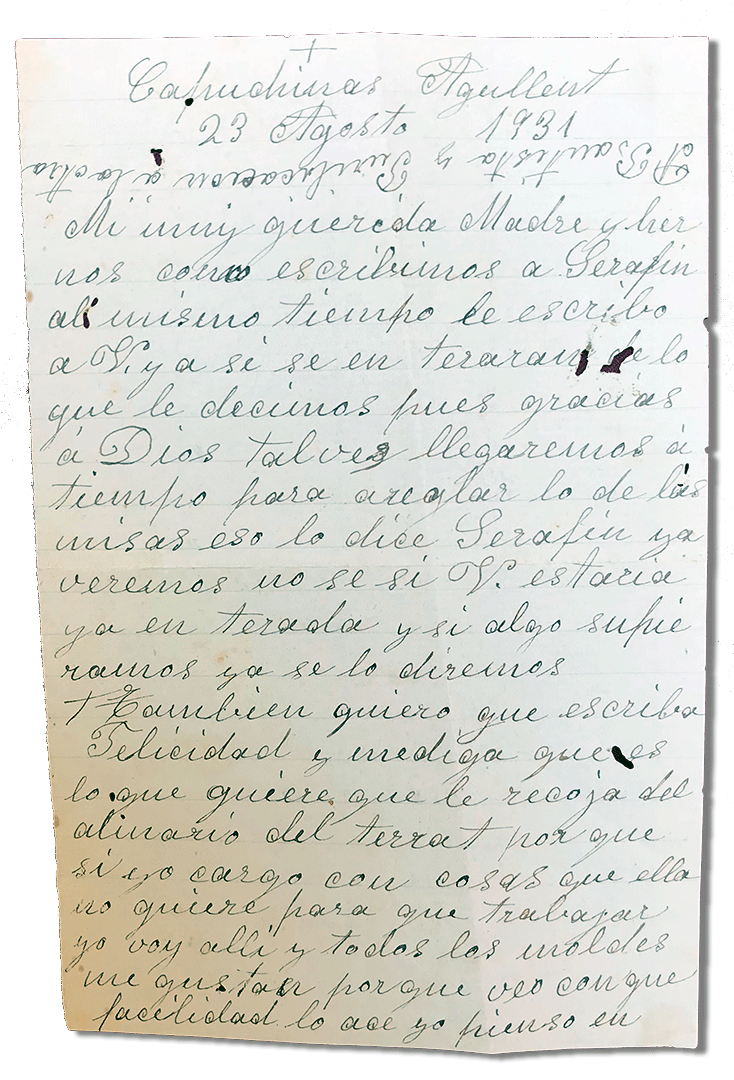 +
Capuchinas Agullent
23 Agosto 1931
A Bautista y Purificacion a la otra
Mi muy querida Madre y her
nos como escribimos a Serafin
al mismo tiempo le escribo
a V. y a si se en teraran de lo
que le decimos pues gracias
á Dios talvez llegaremos á
tiempo para areglar lo de las
misas eso lo dice Serafin ya
veremos no se si V. estaria
ya en terada y si algo supie
ramos ya se lo diremos
Tambien quiero que escriba
Felicidad y mediga que es
lo que quiere que le recoja del
alinario del terrat por que
si yo cargo con cosas que ella
no quiere para que trabajar
yo voy alli y todos los moldes
me gustan porque veo con que
facilidad lo ace yo pienso en